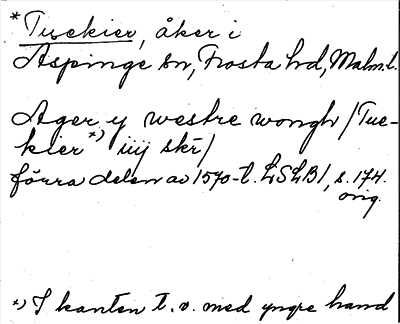 *Tuekier, åker i
Aspinge sn, Frosta hd, Malm.l.
Ager y westre wongh / Tue-
kier *) iiij skr /
förra delen av 1570-t. LSLB1, s. 174.
orig.
*) I kanten t.v. med yngre hand